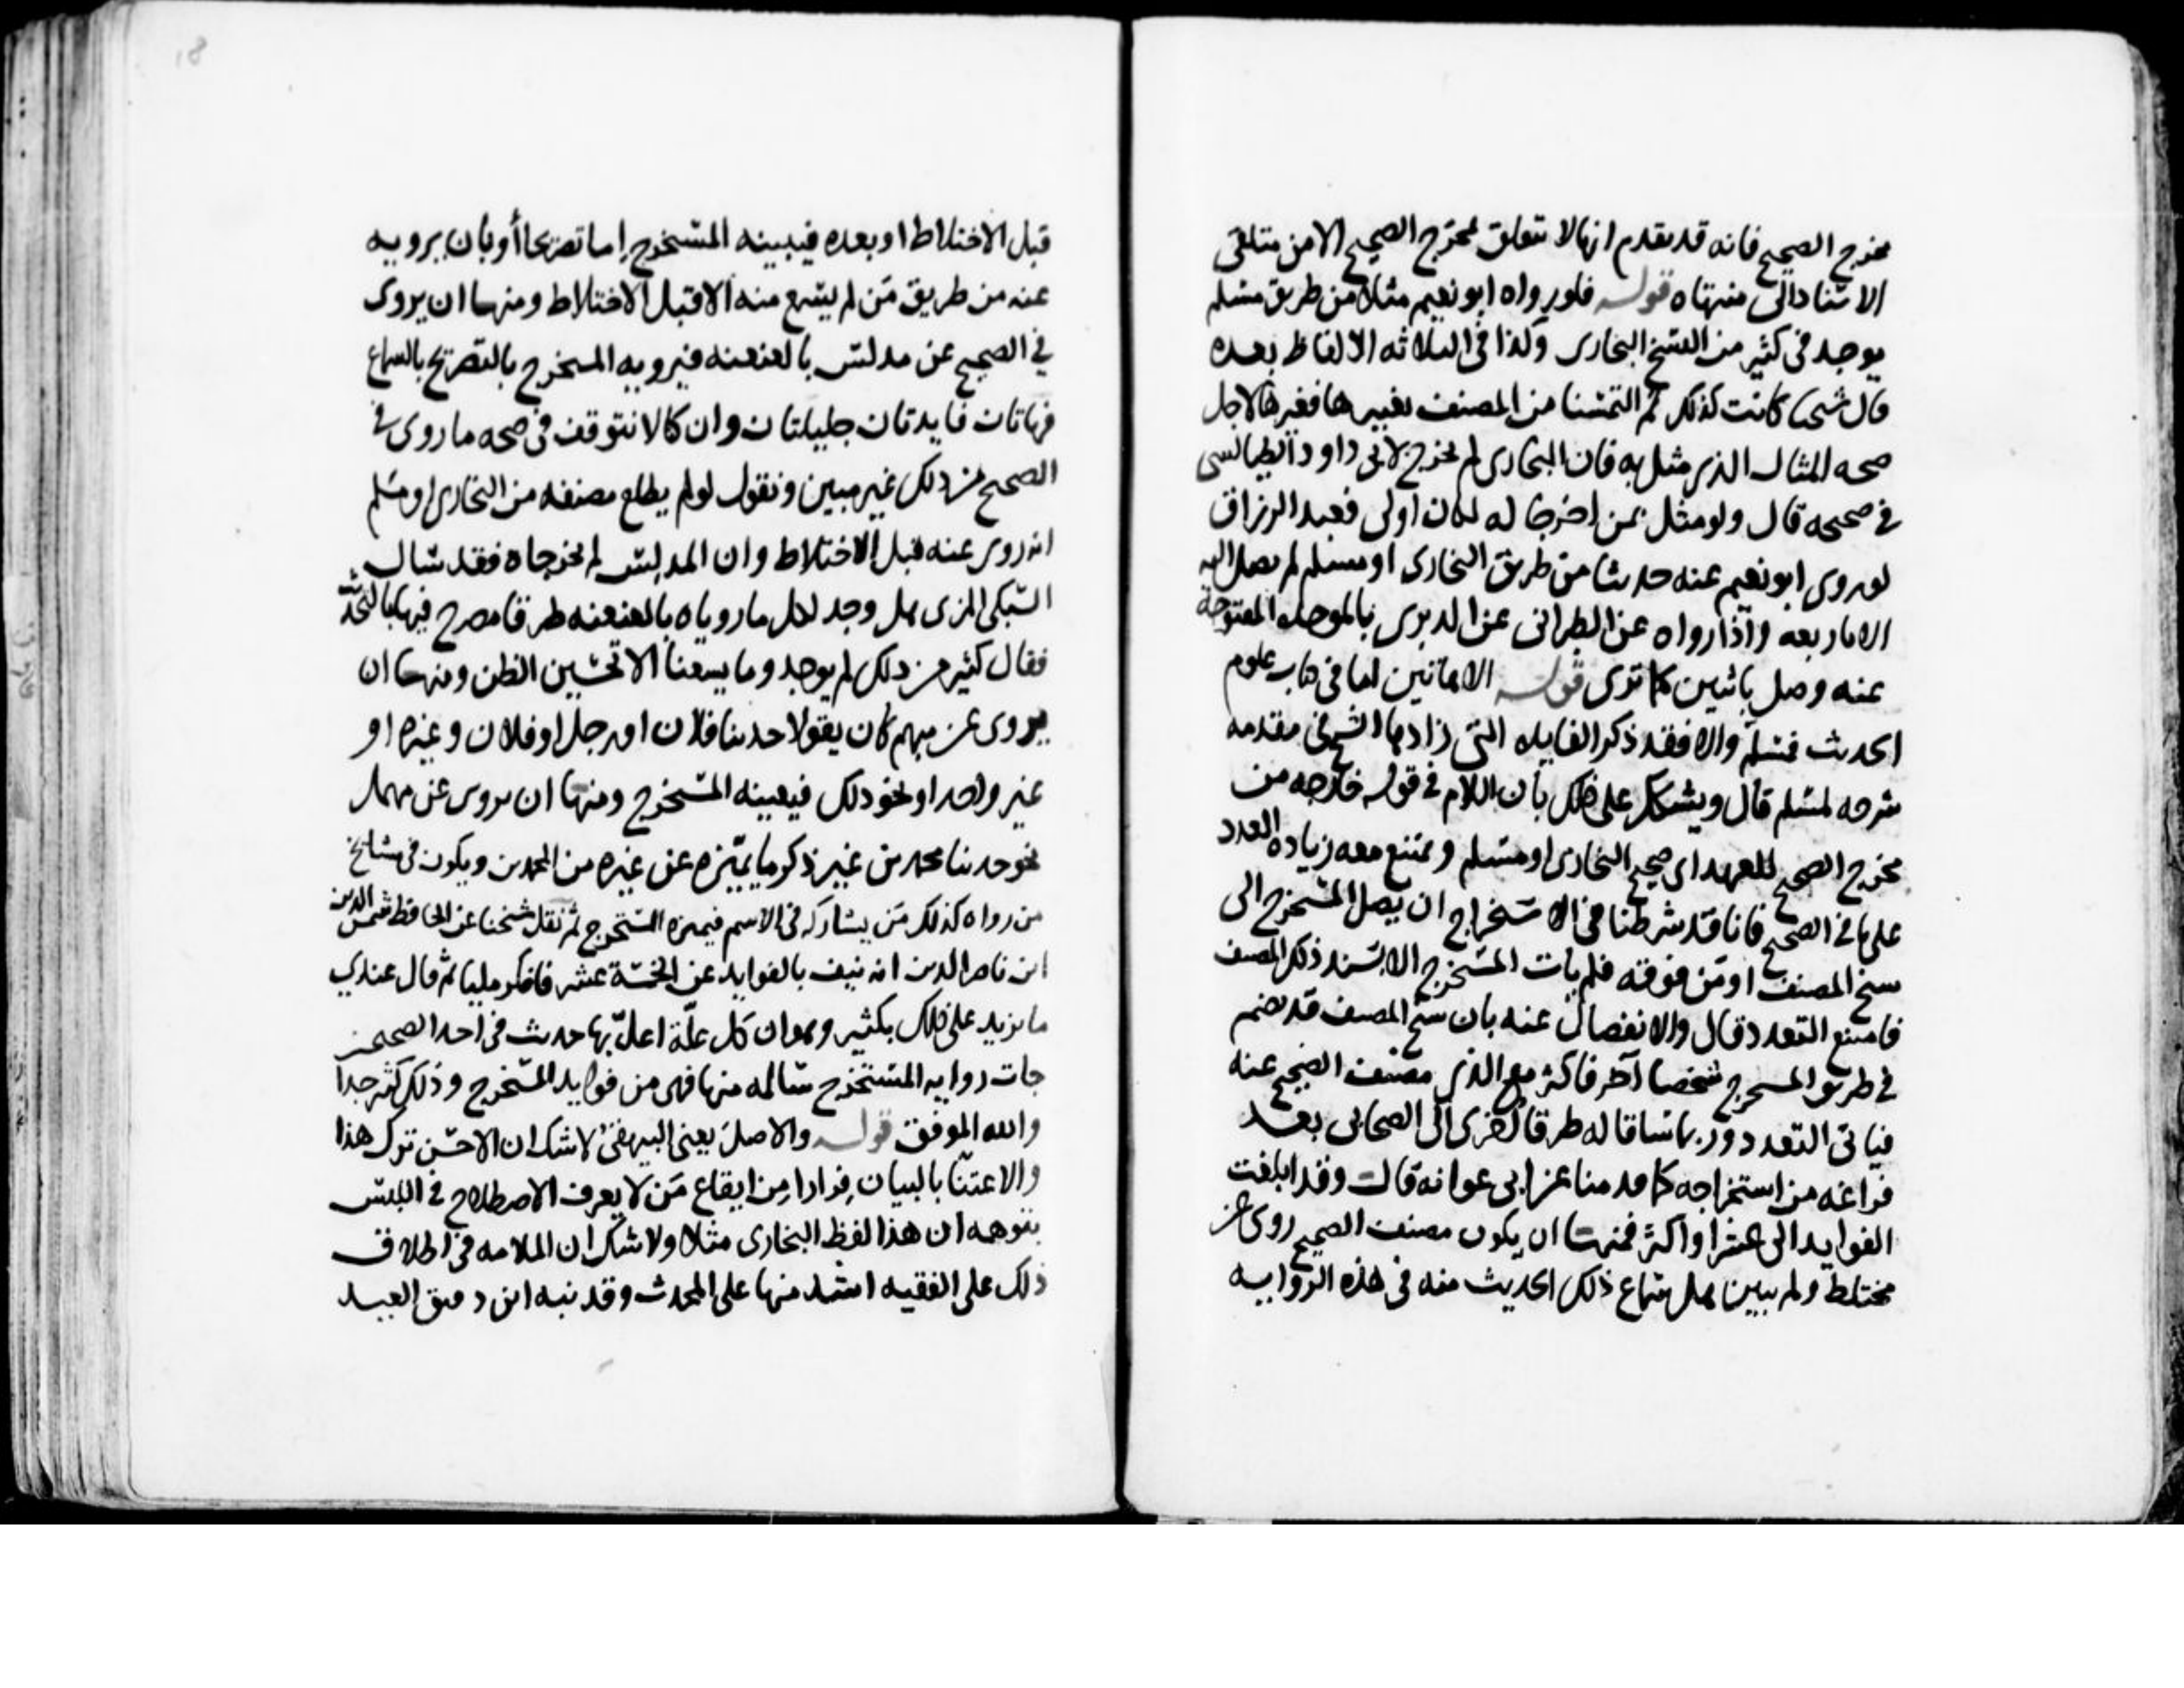 مخرج الصحيح فانه قد تقدم انها لا تتعلق بمخرج الصحيح الا من ملتقى
الاسناد الى منتهاه قوله فلو رواه ابو نعيم مثلا من طريق مسلم
يوجد في كثير من النسخ البخارى وكذا في الثلاثه الالفاظ بعده
قال شيخنا كانت كذلك ثم التمسنا من المصنف تغييرها فغيرها لاجل
صحه المثال الذى مثل به فان البخارى لم يخرج لابى داود الطيالسى
في صحيحه قال ولو مثل بمن اخرجا له لكان اولى فعبد الرزاق
لو روى ابو نعيم عنه حديثا من طريق البخارى او مسلم لم يصل اليه
الا باربعه واذا رواه عن الطبرانى عن الدبرى بالموحده المفتوحة
عنه وصل باثنين كما ترى قوله الا فائدتين اما فى كتاب علوم
الحديث فمسلم والا فقد ذكر الفايده التى زادها الشيخ فى مقدمه
شرحه لمسلم قال ويشكل على ذلك بان اللام في قوله خارجه من
مخرج الصحيح للعهد اى صحيح البخارى او مسلم ويمتنع معه زياده العدد
على ما في الصحيح فانا قد شرطنا فى الاستخراج ان يصل المستخرج الى
شيخ المصنف او من فوقه فلم يات المستخرج الا بسند ذلك المصنف
فامتنع التعدد قال والانفصال عنه بان شيخ المصنف قد يضم
في طريق المستخرج شخصا آخر فاكثر مع الذى مصنف الصحيح عنه
فياتى التعدد وربما ساقا له طرقا اخرى الى الصحابى بعد
فراغه من استخراجه كما قدمنا عن ابى عوانه قال وقد ابلغت
الفوايد الى عشر او اكثر فمنها ان يكون مصنف الصحيح روى عن
مختلط ولم يبين هل سماع ذلك الحديث منه فى هذه الروايه
18
قبل الاختلاط او بعده فيبينه المستخرج إما تصريحا أو بان يرويه
عنه من طريق من لم يسمع منه الا قبل الاختلاط ومنها ان يروى
في الصحيح عن مدلس بالعنعنه فيرويه المستخرج بالتصريح بالسماع
فهاتان فايدتان جليلتان وان كنا لا نتوقف فى صحه ما روى في
الصحيح من ذلك غير مبين ونقول لو لم يطلع مصنفه من البخارى او مسلم
انه روى عنه قبل الاختلاط وان المدلس لم يخرجاه فقد سال
السبكى المزى هل وجد لكل ما روياه بالعنعنه طرقا مصرح فيها بالتحديث
فقال كثير من ذلك لم يوجد وما يسعنا الا تحسين الظن ومنها ان
يروى عن مبهم كان يقولا حدثنا فلان او رجل او فلان وغيره او
غير واحد او نحو ذلك فيعينه المستخرج ومنها ان يروى عن مهمل
نحو حدثنا محمد من غير ذكر ما يميزه عن غيره من المحمدين ويكون فى مشايخ
من رواه كذلك من يشاركه فى الاسم فيميزه المستخرج ثم نقل شيخنا عن الحافظ شمس الدين
ابن ناصر الدين انه نيف بالفوايد عن الخمسة عشر فافكر مليا ثم قال عندي
ما يزيد على ذلك بكثير وهو ان كل علة اعل بها حديث فى احد الصحيحين
جات روايه المستخرج سالمه منها فهى من فوايد المستخرج وذلك كثير جدا
والله الموفق قوله والاصل يعنى البيهقى لا شك ان الاحسن ترك هذا
والاعتنا بالبيان فرارا من ايقاع من لا يعرف الاصطلاح في اللبس
بتوهمه ان هذا لفظ البخارى مثلا ولا شك ان الملامه فى اطلاق
ذلك على الفقيه اشد منها على المحدث وقد نبه ابن دقيق العيد